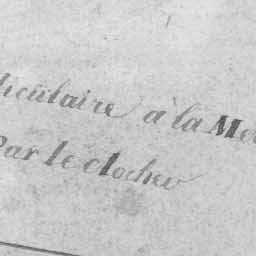 diculaire à la Me
Par le clocher